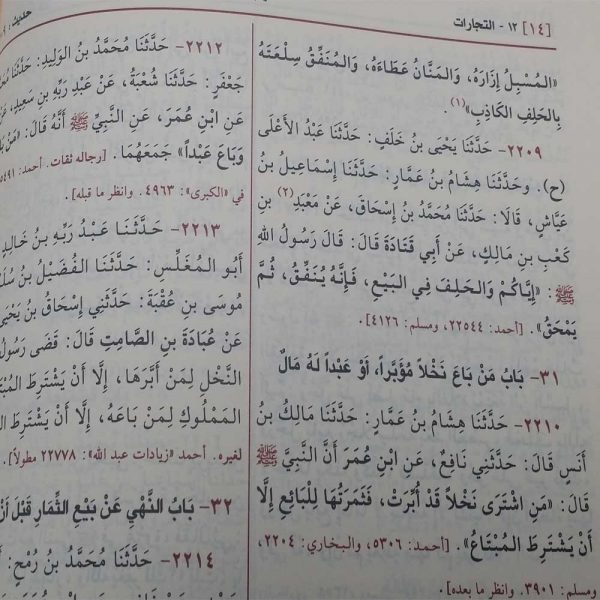 [١٤] ١٢ - التجارات
«المُسْبِلُ إِزَارَهُ، وَالمَنَّانُ عَطَاءَهُ، وَالمُنَفِّقُ سِلْعَتَهُ
بِالحَلِفِ الكَاذِبِ»(١).
٢٢٠٩- حَدَّثَنَا يَحْيَى بنُ خَلَفٍ: حَدَّثَنَا عَبْدُ الأَعْلَى
(ح). وحَدَّثَنَا هِشَامُ بنُ عَمَّارٍ: حَدَّثَنَا إِسْمَاعِيلُ بنُ
عَيَّاشٍ، قَالَا: حَدَّثَنَا مُحَمَّدُ بنُ إِسْحَاقَ، عَنْ مَعْبَدِ(٢) بنِ
كَعْبِ بنِ مَالِكٍ، عَنْ أَبِي قَتَادَةَ قَالَ: قَالَ رَسُولُ اللهِ
ﷺ: «إِيَّاكُمْ وَالحَلِفَ فِي البَيْعِ، فَإِنَّهُ يُنَفِّقُ، ثُمَّ
يَمْحَقُ». [أحمد: ٢٢٥٤٤، ومسلم: ٤١٢٦].
٣١- بَابُ مَنْ بَاعَ نَخْلاً مُؤَبَّراً، أَوْ عَبْداً لَهُ مَالٌ
٢٢١٠- حَدَّثَنَا هِشَامُ بنُ عَمَّارٍ: حَدَّثَنَا مَالِكُ بنُ
أَنَسٍ قَالَ: حَدَّثَنِي نَافِعٌ، عَنِ ابْنِ عُمَرَ أَنَّ النَّبِيَّ ﷺ
قَالَ: «مَنِ اشْتَرَى نَخْلاً قَدْ أُبِّرَتْ، فَثَمَرَتُهَا لِلْبَائِعِ إِلَّا
أَنْ يَشْتَرِطَ المُبْتَاعُ». [أحمد: ٥٣٠٦، والبخاري: ٢٢٠٤،
ومسلم: ٣٩٠١. وانظر ما بعده].
٢٢١٢- حَدَّثَنَا مُحَمَّدُ بنُ الوَلِيدِ: حَدَّثَنَا
جَعْفَرٍ: حَدَّثَنَا شُعْبَةُ، عَنْ عَبْدِ رَبِّهِ بنِ سَعِيدٍ،
عَنِ ابْنِ عُمَرَ، عَنِ النَّبِيِّ ﷺ أَنَّهُ قَالَ:
وَبَاعَ عَبْداً» جَمَعَهُمَا. [رجاله ثقات. أحمد:
في «الكبرى»: ٤٩٦٣. وانظر ما قبله].
٢٢١٣- حَدَّثَنَا عَبْدُ رَبِّهِ بنُ خَالِدٍ
أَبُو المُغَلِّسِ: حَدَّثَنَا الفُضَيْلُ بنُ
مُوسَى بنِ عُقْبَةَ: حَدَّثَنِي إِسْحَاقُ بنُ يَحْيَى
عَنْ عُبَادَةَ بنِ الصَّامِتِ قَالَ: قَضَى رَسُولُ
النَّخْلِ لِمَنْ أَبَّرَهَا، إِلَّا أَنْ يَشْتَرِطَ
المَمْلُوكِ لِمَنْ بَاعَهُ، إِلَّا أَنْ يَشْتَرِطَ
لغيره. أحمد «زيادات عبد الله»: ٢٢٧٧٨ مطولاً].
٣٢- بَابُ النَّهْيِ عَنْ بَيْعِ الثِّمَارِ قَبْلَ أَنْ
٢٢١٤- حَدَّثَنَا مُحَمَّدُ بنُ رُمْحٍ: